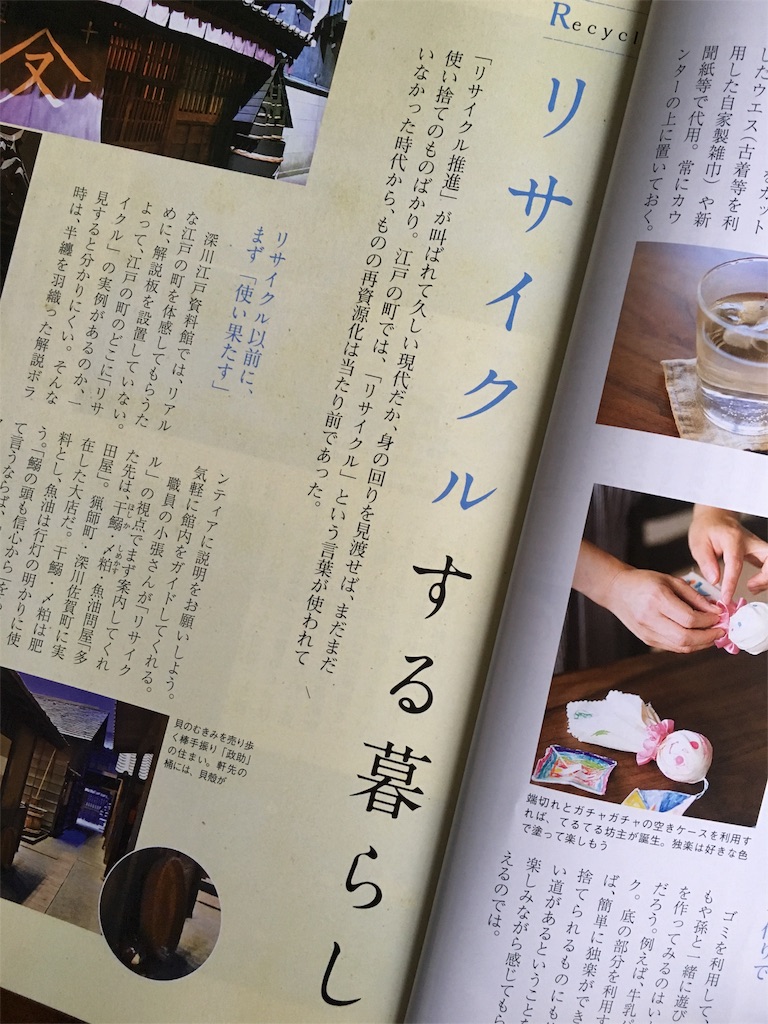 Recycl
リサイクルする暮らし
「リサイクル推進」が叫ばれて久しい現代だが、身の回りを見渡せば、まだまだ
使い捨てのものばかり。江戸の町では、「リサイクル」という言葉が使われて
いなかった時代から、ものの再資源化は当たり前であった。
リサイクル以前に、
まず「使い果たす」
深川江戸資料館では、リアル
な江戸の町を体感してもらうた
めに、解説板を設置していない。
よって、江戸の町のどこに「リサ
イクル」の実例があるのか、一
見すると分かりにくい。そんな
時は、半纏を羽織った解説ボラ
ンティアに説明をお願いしよう。
気軽に館内をガイドしてくれる。
職員の小張さんが「リサイク
ル」の視点でまず案内してくれ
た先は、干鰯・〆粕・魚油問屋「多
ほしか しめかす
田屋」。猟師町・深川佐賀町に実
在した大店だ。干鰯・〆粕は肥
料とし、魚油は行灯の明かりに使
う。「鰯の頭も信心から」を
て言うならば、
貝のむきみを売り歩
く棒手振り「政助」
の住まい。軒先の
桶には、貝殻が
ヌ
をカット
したウエス(古着等を利
用した自家製雑巾)や新
聞紙等で代用。常にカウ
ンターの上に置いておく。
端切れとガチャガチャの空きケースを利用す
れば、てるてる坊主が誕生。独楽は好きな色
で塗って楽しもう
作りで
ゴミを利用して、
もや孫と一緒に遊び
を作ってみるのはい
だろう。例えば、牛乳パ
ク。底の部分を利用す
ば、簡単に独楽ができ
捨てられるものにも
い道があるということを
楽しみながら感じてもら
えるのでは。